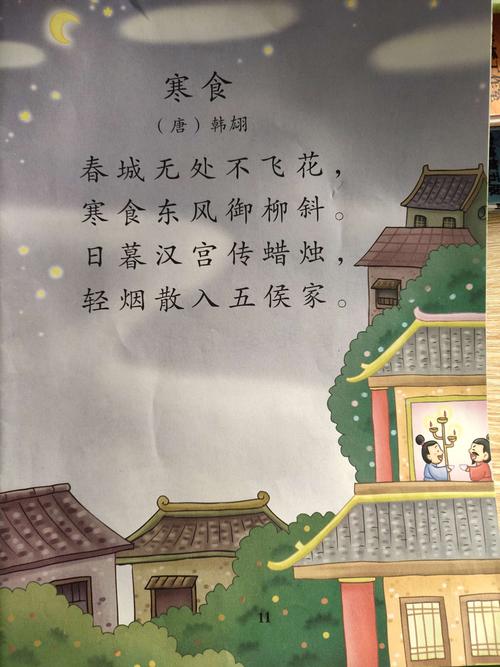 寒食
（唐）韩翃
春城无处不飞花，
寒食东风御柳斜。
日暮汉宫传蜡烛，
轻烟散入五侯家。
11